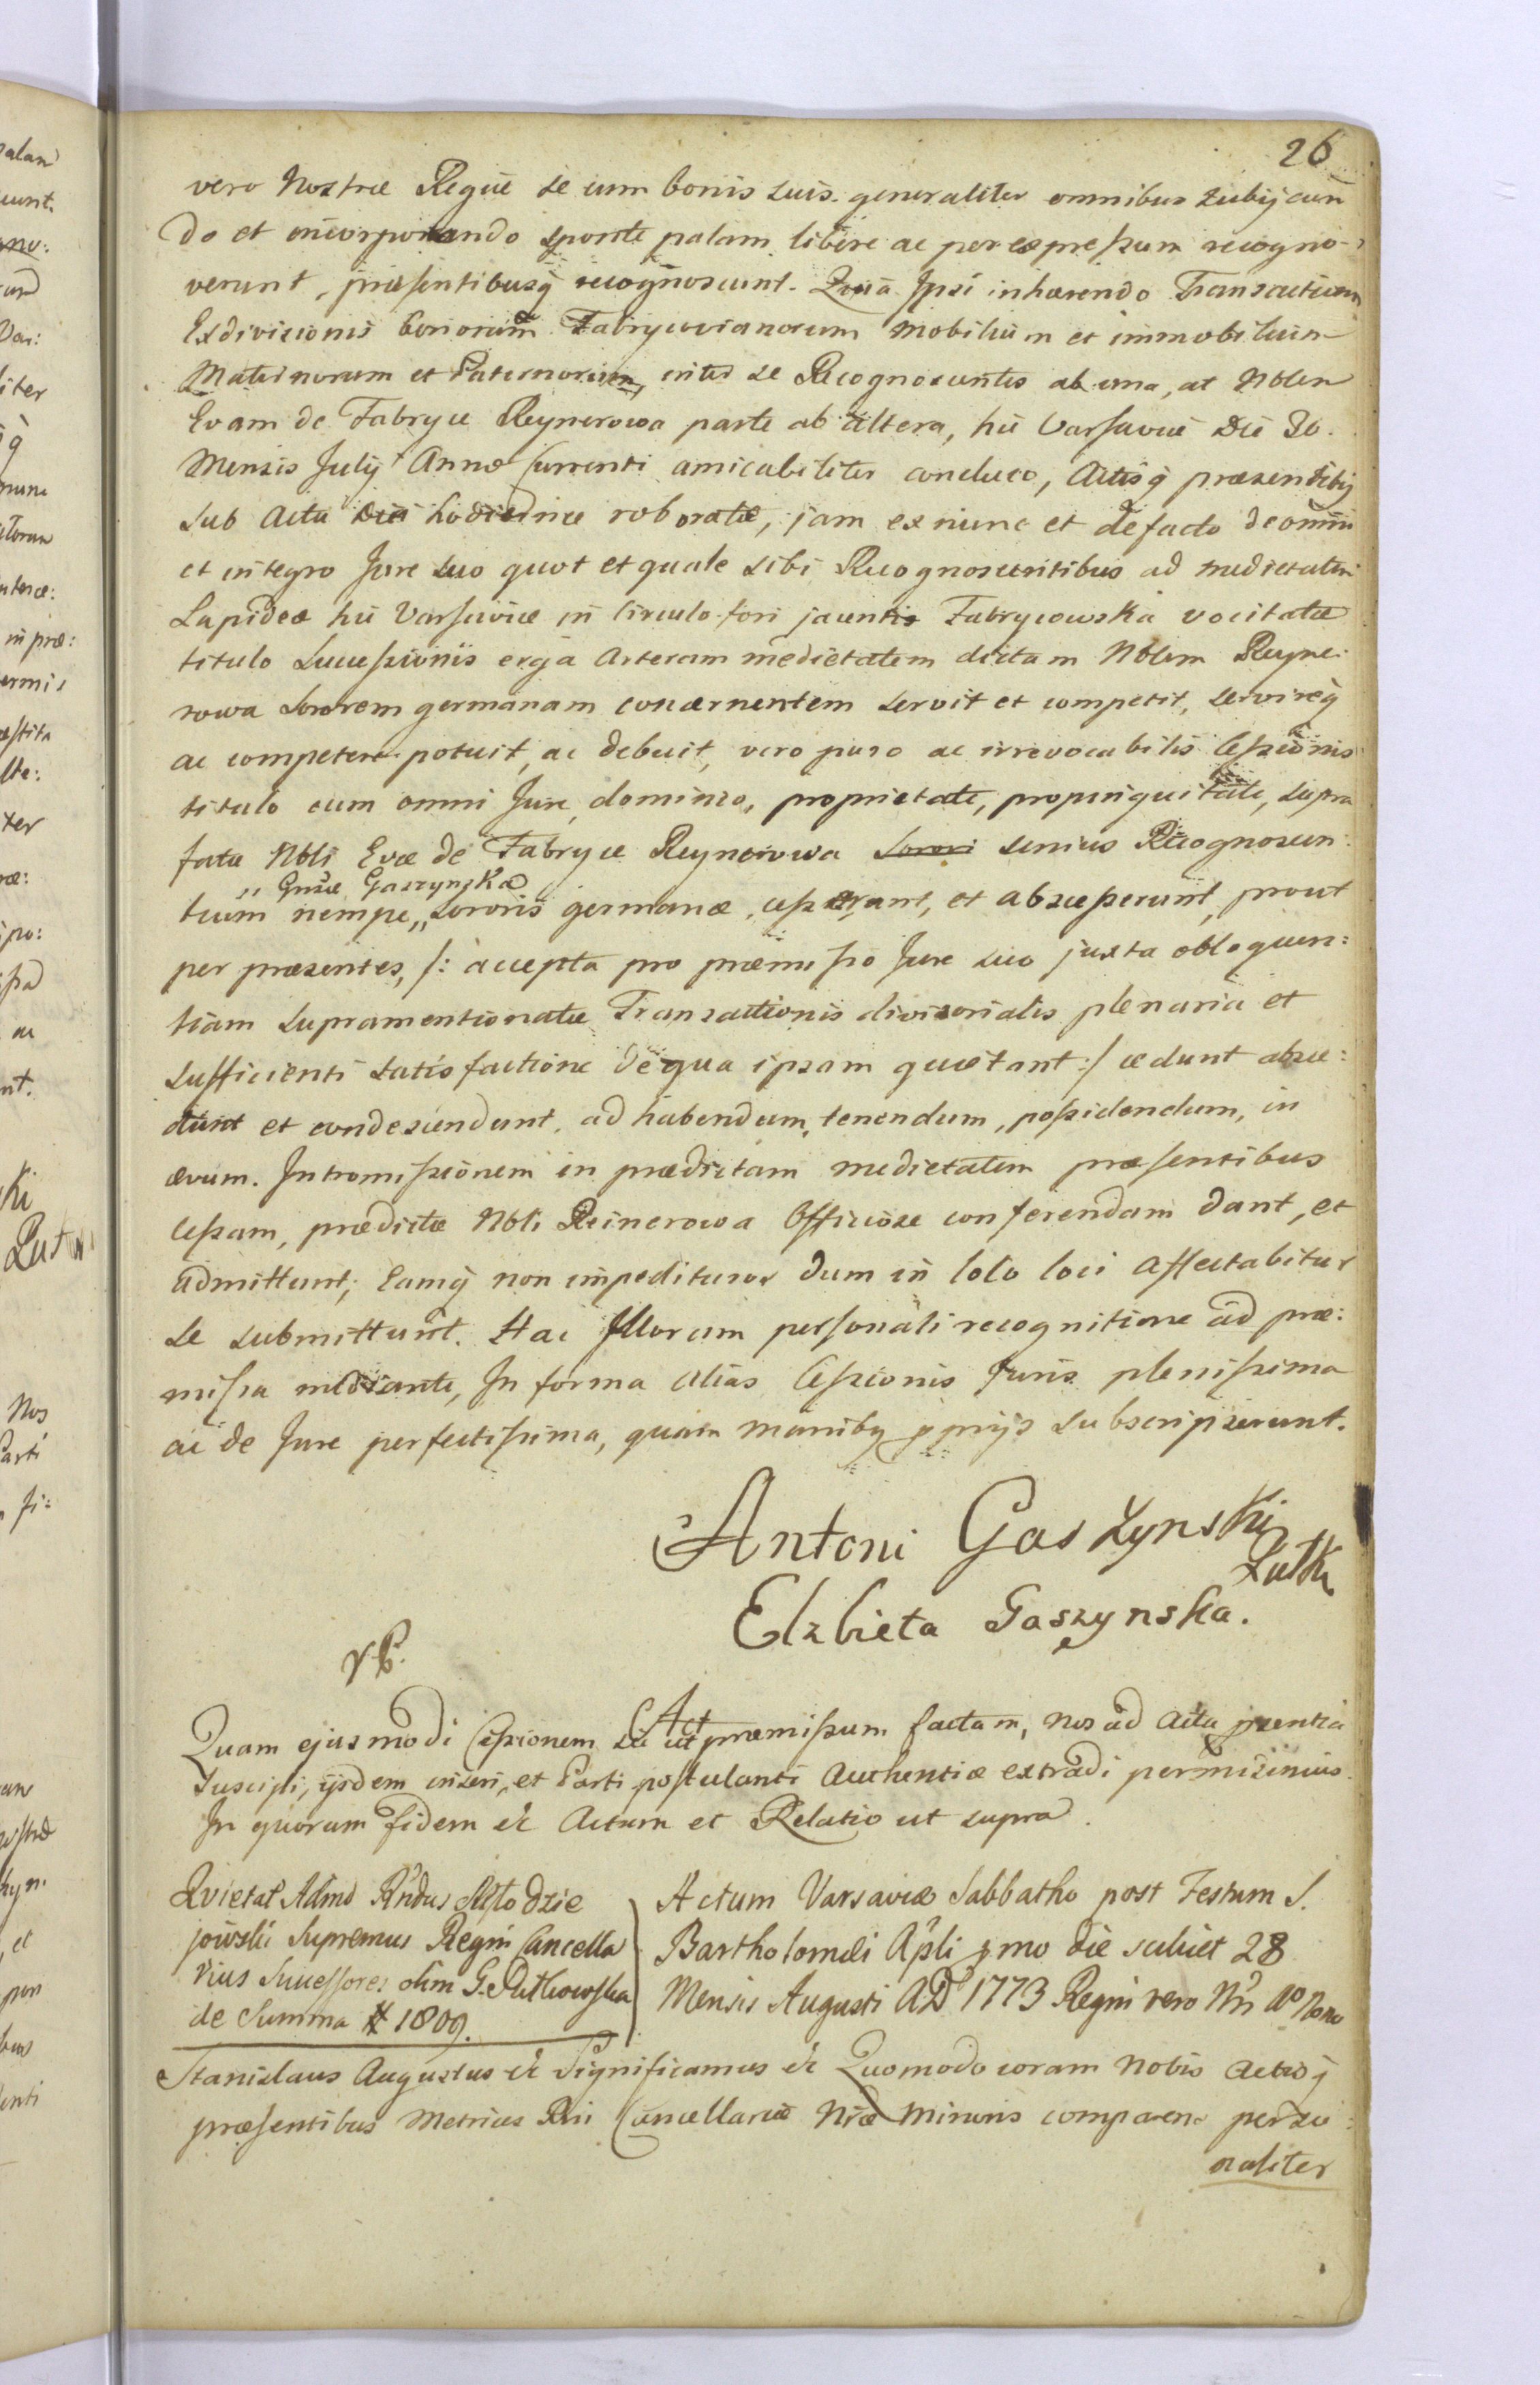 26
vero Nostræ Regiæ se cum bonis suis generaliter omnibus subijcien
do et incorporando sponte palam libere ac per expressum recogno-
verunt, præsentibusq̃ recognoscunt. Quia Ipsi inhærendo Transactioni
Exdivisionis bonorum Fabrycovianorum mobilium et immobilium
Maternorum et Paternorum, inter se Recognoscentes ab una, at Nblem
Evam de Fabryce Reynerowa parte ab altera, hic Varsaviæ die 30.
Mensis Julij Anno Currenti amicabiliter concluso, Actisq̃ præsentibq
sub Actu diei hodiernæ roboratæ, jam ex nunc et de facto de omni
et integro Jure suo quot et quale sibi Recognoscentibus ad medietatem
Lapideæ hic Varsaviæ in Circulo fori jacentis Fabrycowska vocitatæ
titulo Successionis erga Alteram medietatem dictam Nblem Reyne:
rowa Sororem germanam concernentem servit et competit, servireq̃
ac competere potuit, ac debuit, vero puro ac irrevocabilis Cessionis
titulo cum omni Jure, dominio, proprietate, propinquitate, supra
fatæ Nbli Evæ de Fabryce Reynerowa Sorori unius Recognoscen:
" Gnsæ Gaszynska
tium nempe " sororis germanæ, cesserunt, et abscesserunt, prout
per præsentes, /: accepta pro præmisso Jure suo juxta obloquen:
tiam supramentionatæ Transactionis divisorialis plenaria et
sufficienti satisfactione de qua ipsam quietant :/ cedunt absce:
dunt et condescendunt, ad habendum, tenendum, possidendum, in
ævum. Intromissionem in prædictam medietatem præsentibus
Cessam, prædictæ Nbli Reinerowa Officiose conferendam dant, et
admittunt, Eamq̃ non impedituros dum in loco loci affectabitur
se submittunt. Hac Illorum personali recognitione ad præ:
missa mediante, In forma alias Cessionis Juris plenissima
ac de Jure perfectissima, quam manibq pprijs subscripserunt.
Antoni Gaszynski
Elzbieta Gaszynska.
Quam ejusmodi Cessionem ut præmissum factam, nos ad Acta præntia
suscipi, ijsdem inseri, et Parti postulanti Authentice extradi permisimus
In quorum fidem &c Actum et Relatio ut supra.
Quietat Admd Rndus Młodzie
jowski Supremus Regni Cancella
rius Successores olim G. Rutkowska
de Summa # 1809.
Actum Varsaviæ Sabbatho post Festum S.
Bartholomæi Apli pmo die scilicet 28
Mensis Augusti AD 1773 Regni vero Nri Ao Nono
Stanislaus Augustus &c Significamus &c Quomodo coram Nobis Actisq̃
præsentibus Metrices Rni Cancellariæ Nræ Minoris comparens perso:
naliter